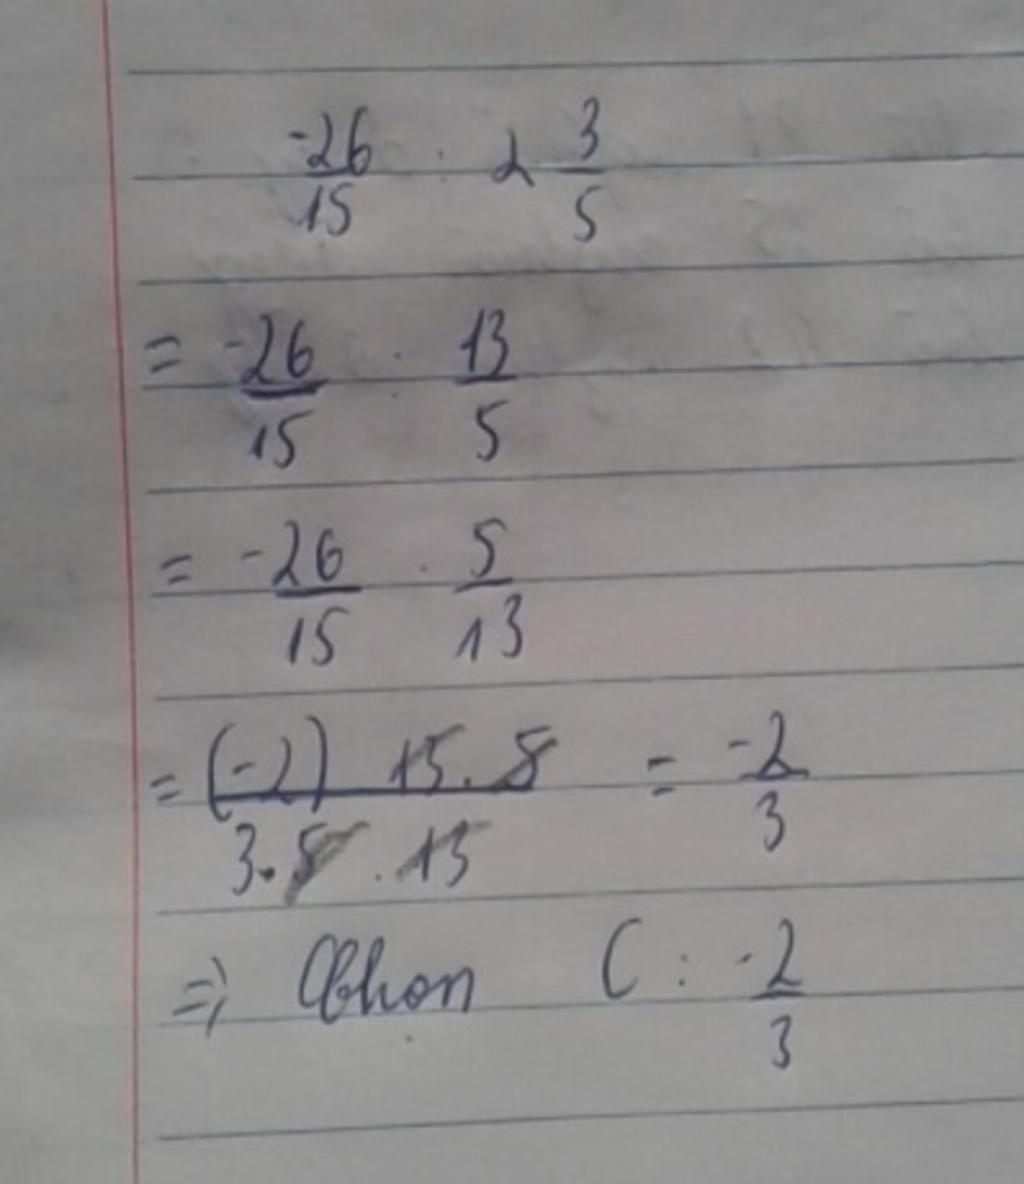 -26/15 : 2 3/5
= -26/15 : 13/5
= -26/15 . 5/13
= (-2) 13.5/3.5.13 = -2/3
=> Chọn C: -2/3